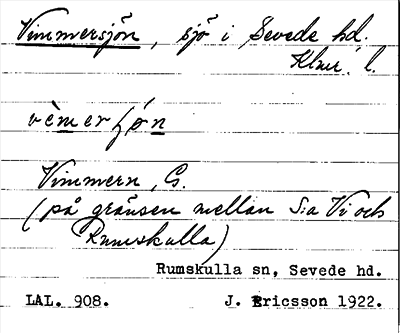 Vimmersjön, sjö i Sevede hd.
Klmr. l.
vèmerʃön
Vimmern, G.
(på gränsen mellan S:a Vi och
Rumskulla)
Rumskulla sn, Sevede hd.
LAL. 908. J. Ericsson 1922.